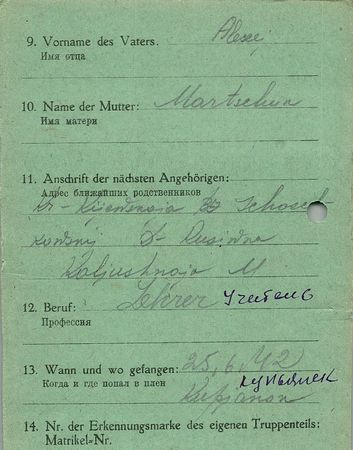 9. Vorname des Vaters. Alexej
Имя отца
10. Name der Mutter: Martschun
Имя матери
11. Anschrift der nächsten Angehörigen:
Адрес ближайших родственников
Kr-Kijewskaja
D- Rusiwna
Kaljushnaja M
12. Beruf: Lehrer Учитель
Профессия
13. Wann und wo gefangen: 25,6,42
Когда и где попал в плен
Kupjanon
14. Nr. der Erkennungsmarke des eigenen Truppenteils:
Matrikel-Nr.